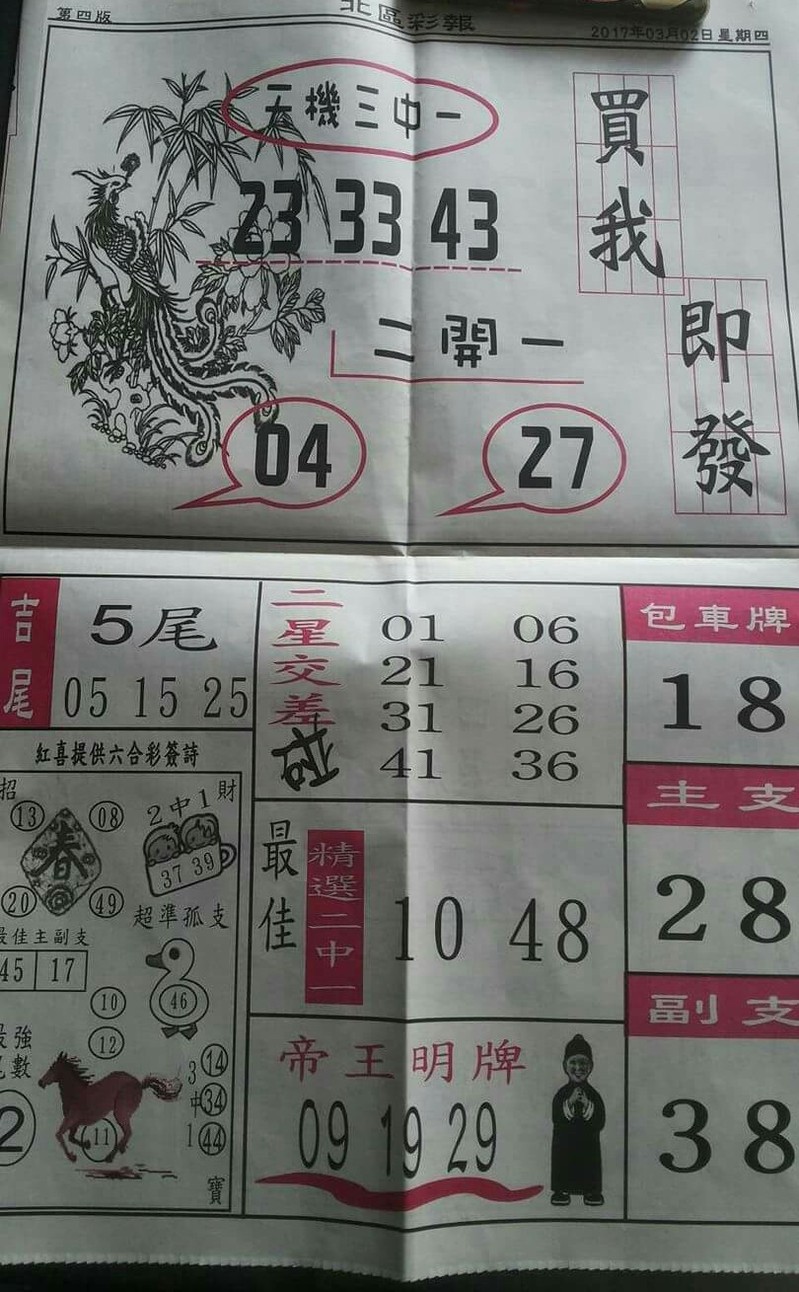 第四版
北區彩報
2017年03月02日星期四
天機三中一
23 33 43
二開一
04
27
買我
即發
吉尾
5尾
05 15 25
二星交差
01 06
21 16
31 26
41 36
包車牌
18
主支
28
副支
38
紅喜提供六合彩簽詩
招
財
13
08
春
20
49
2中1
37 39
超準孤支
46
最佳主副支
45 17
10
12
最強
尾數
2
11
3中1
14
34
44
寶
最佳
精選二中一
10 48
帝王明牌
09 19 29